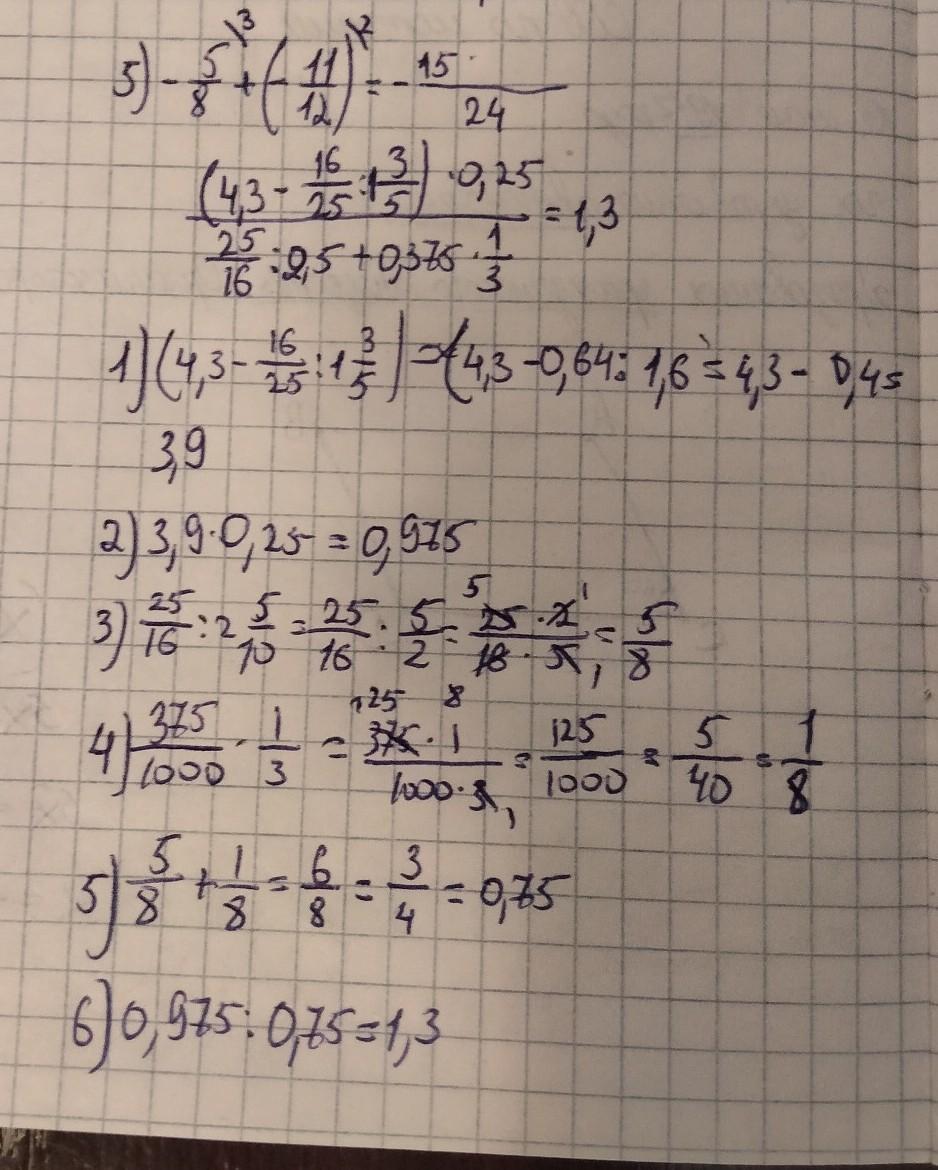 5) -5/8\3 + (-11/12)\2 = -15/24
(4,3 - 16/25 : 1 3/5) · 0,25
= 1,3
25/16 : 2,5 + 0,375 · 1/3
1) (4,3 - 16/25 : 1 3/5) = (4,3 - 0,64 : 1,6 = 4,3 - 0,4 =
3,9
2) 3,9 · 0,25 = 0,975
3) 25/16 : 2 5/10 = 25/16 : 5/2 = 25 · 2 / 16 · 5 = 5/8
4) 375/1000 · 1/3 = 375 · 1 / 1000 · 3 = 125/1000 = 5/40 = 1/8
5) 5/8 + 1/8 = 6/8 = 3/4 = 0,75
6) 0,975 : 0,75 = 1,3